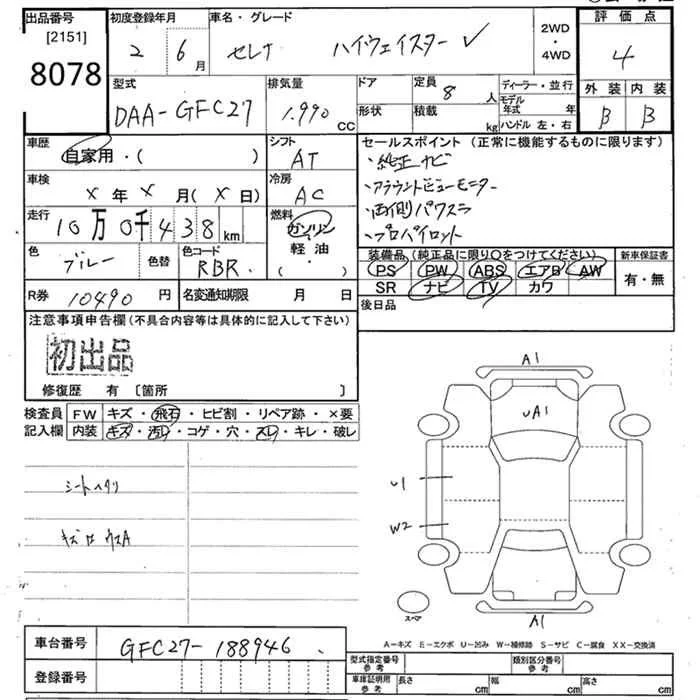 出品番号
[2151]
8078
初度登録年月
2 6月
車名・グレード
セレナ ハイウェイスターV
2WD
・
4WD
評価点
4
外装 内装
B B
型式
DAA-GFC27
排気量
1.990 CC
ドア
形状
定員 8 人
積載 kg
ディーラー・並行
モデル年式 年
ハンドル 左・右
車歴
自家用・( )
シフト
AT
セールスポイント (正常に機能するものに限ります)
・純正ナビ
・アラウンドビューモニター
・両側パワスラ
・プロパイロット
車検
X年X月(X日)
冷房
AC
走行
10万0千438km
燃料
ガソリン
軽油
・( )
色
ブルー
色替
色コード
RBR
装備品 (純正品に限り○をつけてください)
新車保証書
PS PW ABS エアB AW
有・無
SR ナビ TV カワ
R券 10490円
名変通知期限 月 日
後日品
注意事項申告欄(不具合内容等は具体的に記入して下さい)
初出品
修復歴 有 〔箇所 〕
検査員
記入欄
FW キズ・飛石・ヒビ割・リペア跡・×要
内装 キズ・汚レ・コゲ・穴・スレ・キレ・破レ
シートヘタリ
A1
UA1
U1
W2
A1
スペア
A-キズ E-エクボ U-凹み W-補修跡 S-サビ C-腐食 XX-交換済
車台番号 GFC27-188946
登録番号
型式指定番号
参考
類別区分番号
参考
車庫証明用
参考
長さ cm 幅 cm 高さ cm